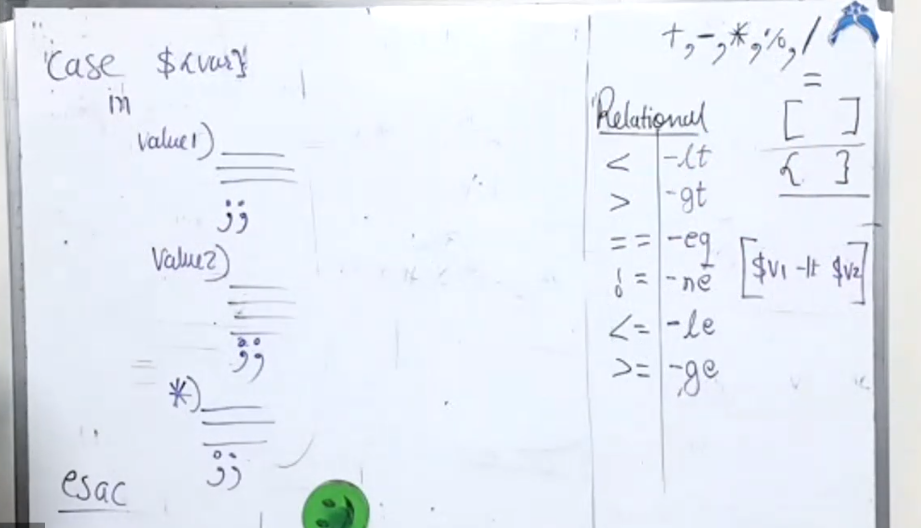 case ${var}
in
value1)
;;
value2)
;;
*)
;;
esac
+, -, *, %, /
=
Relational
[ ]
{ }
< -lt
> -gt
== -eq
!= -ne
<= -le
>= -ge
[$v1 -lt $v2]